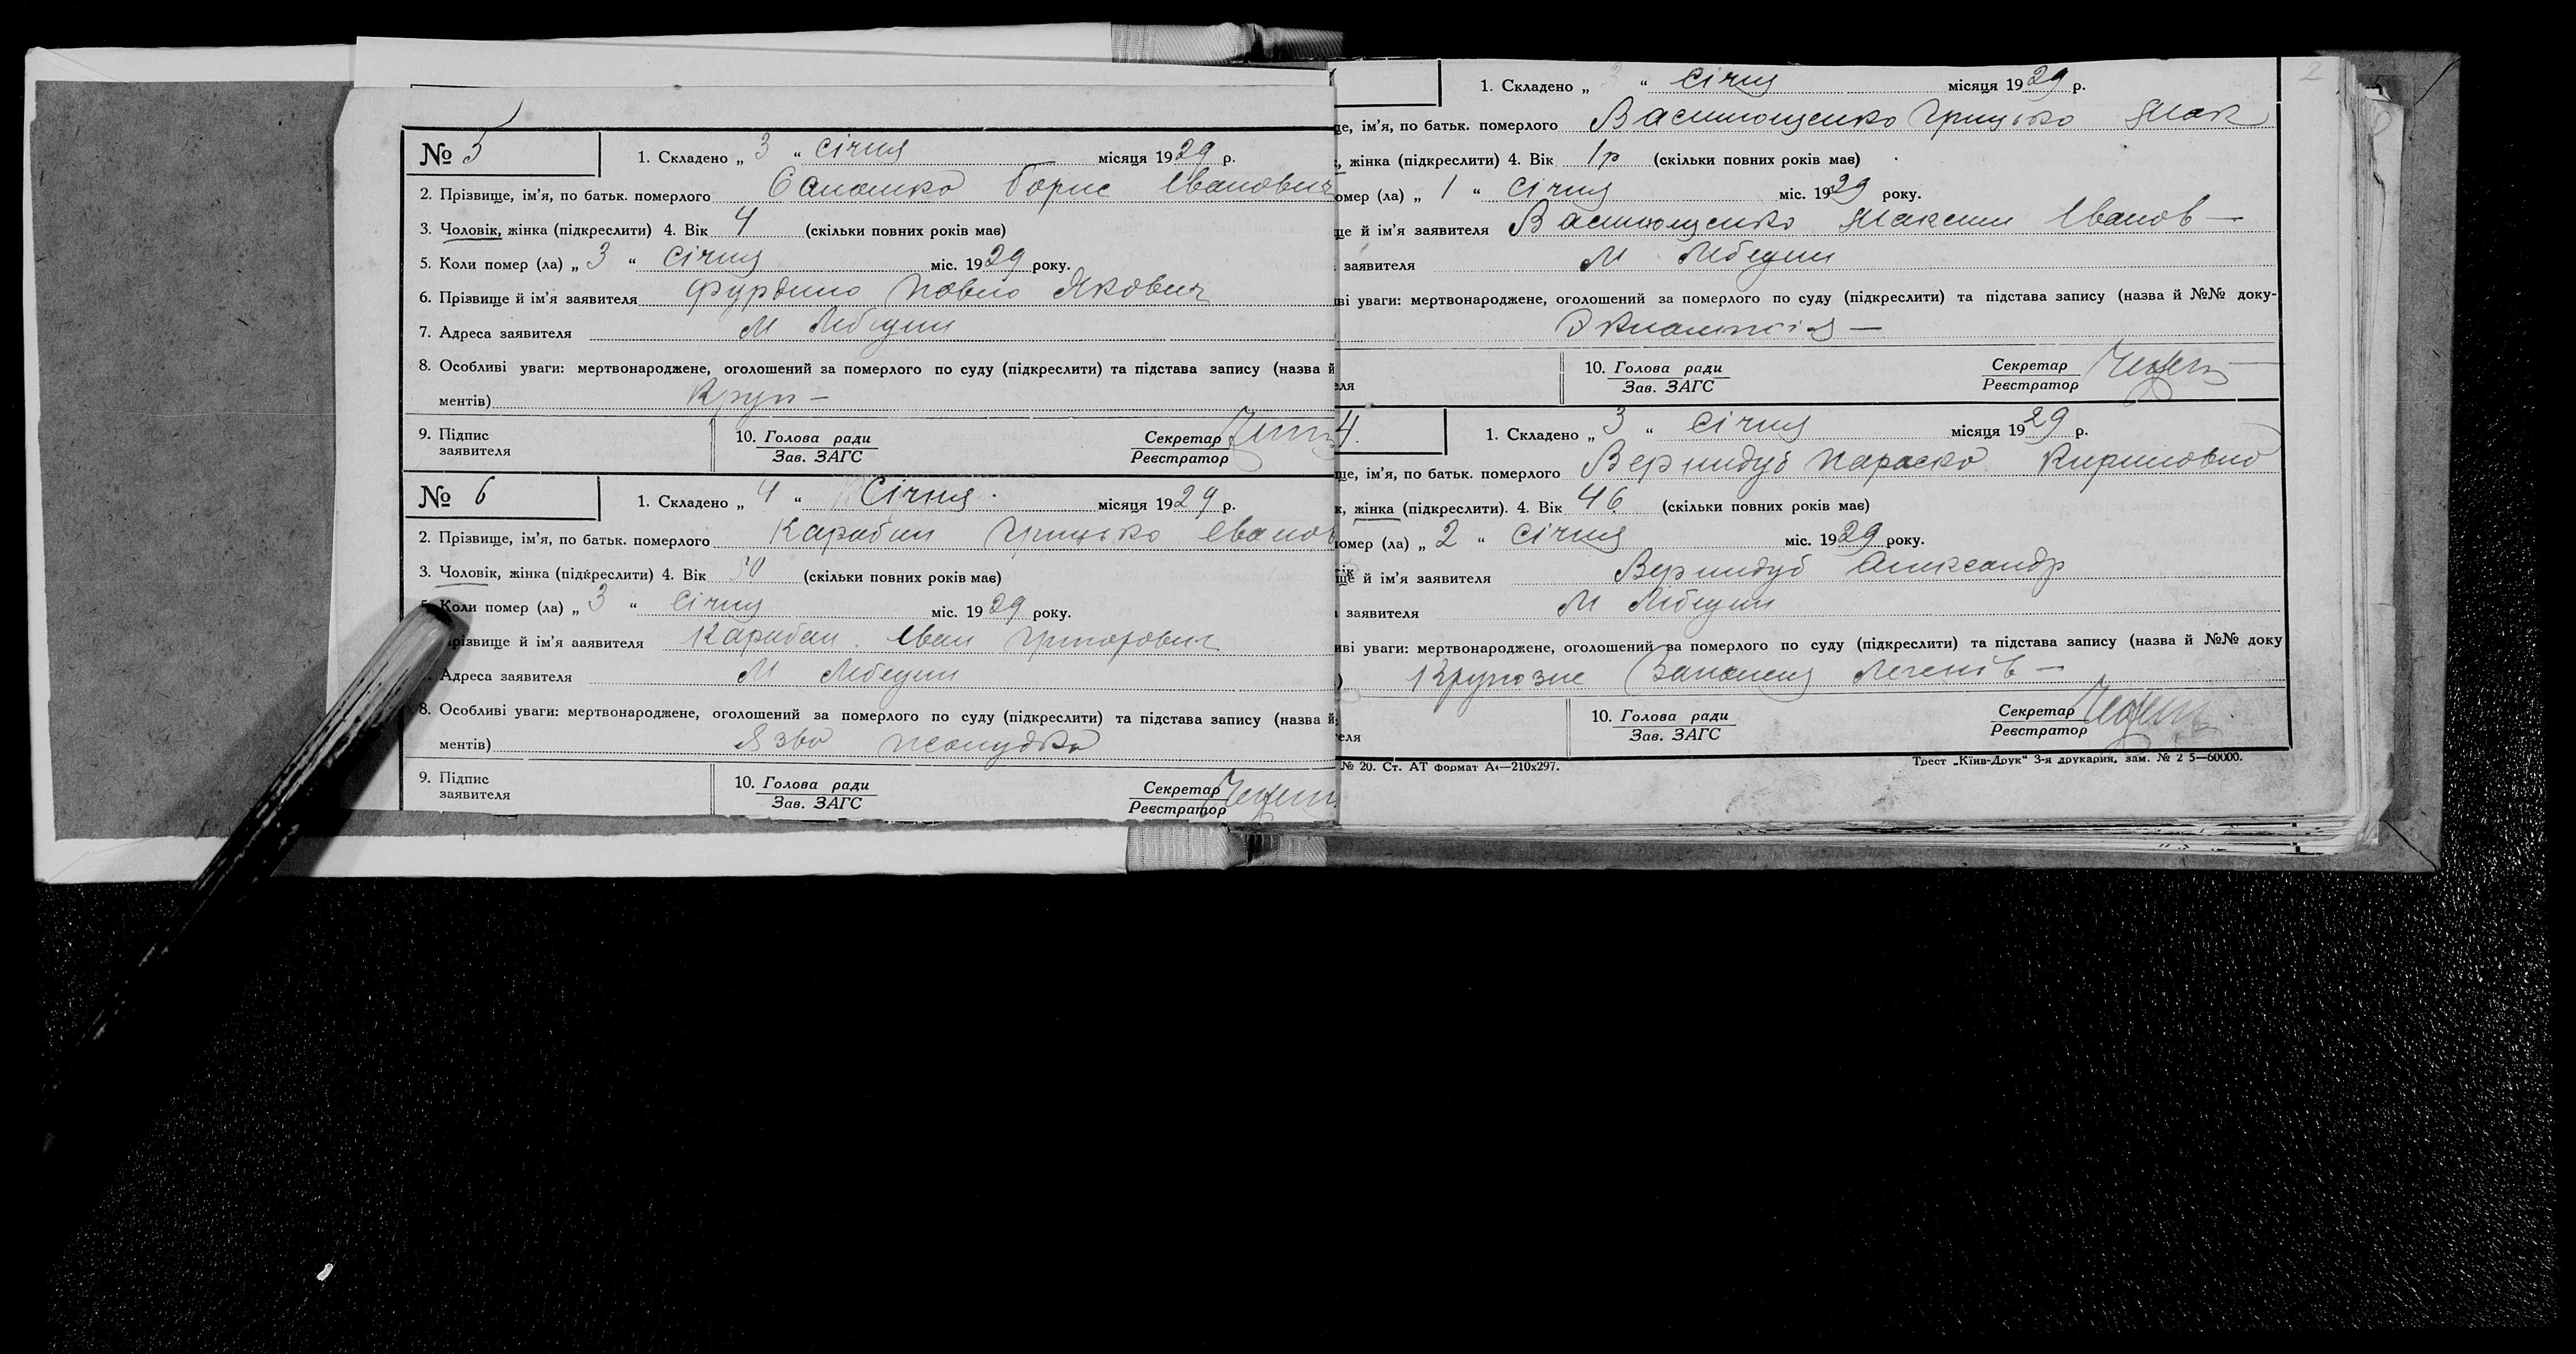 № 5
1. Складено „ 3 “ Січня місяця 1929 р.
2. Прізвище, ім'я, по батьк. померлого Борис Іванович
3. Чоловік, жінка (підкреслити) 4. Вік 4 (скільки повних років має)
5. Коли помер (ла) „ 3 “ Січня міс. 1929 року.
6. Прізвище й ім'я заявителя Фурдило Павло Якович
7. Адреса заявителя М Лебедин
8. Особливі уваги: мертвонароджене, оголошений за померлого по суду (підкреслити) та підстава запису (назва й
ментів) Круп —
9. Підпис
заявителя
10. Голова ради
Зав. ЗАГС
Секретар
Реєстратор
№ 6
1. Складено „ 4 “ Січня місяця 1929 р.
2. Прізвище, ім'я, по батьк. померлого Карабан Грицько Іванов
3. Чоловік, жінка (підкреслити) 4. Вік (скільки повних років має)
5. Коли помер (ла) „ 3 “ Січня міс. 1929 року.
Прізвище й ім'я заявителя Карабан Іван Григорович
Адреса заявителя М Лебедин
8. Особливі уваги: мертвонароджене, оголошений за померлого по суду (підкреслити) та підстава запису (назва й
ментів) Язва жолудка
9. Підпис
заявителя
10. Голова ради
Зав. ЗАГС
Секретар
Реєстратор
2
1. Складено „ 3 “ Січня місяця 1929 р.
ще, ім'я, по батьк. померлого Васильощенко Грицько Мак
жінка (підкреслити) 4. Вік 1 р (скільки повних років має)
омер (ла) „ 1 “ Січня міс. 1929 року.
ще й ім'я заявителя Васильощенко Максим Іванов —
заявителя М Лебедин
ві уваги: мертвонароджене, оголошений за померлого по суду (підкреслити) та підстава запису (назва й №№ доку-
Эклампсія —
еля
10. Голова ради
Зав. ЗАГС
Секретар
Реєстратор
4.
1. Складено „ 3 “ Січня місяця 1929 р.
ще, ім'я, по батьк. померлого Вернидуб Параска Кириловна
к, жінка (підкреслити). 4. Вік 46 (скільки повних років має)
омер (ла) „ 2 “ Січня міс. 1929 року.
ще й ім'я заявителя Вернидуб Александр
заявителя М Лебедин
иві уваги: мертвонароджене, оголошений за померлого по суду (підкреслити) та підстава запису (назва й №№ доку
Крупозне Запаленя Легенів —
еля
10. Голова ради
Зав. ЗАГС
Секретар
Реєстратор
№ 20. Ст. АТ формат А4—210х297.
Трест „Київ-Друк“ 3-я друкарня, зам. № 2 5—60000.